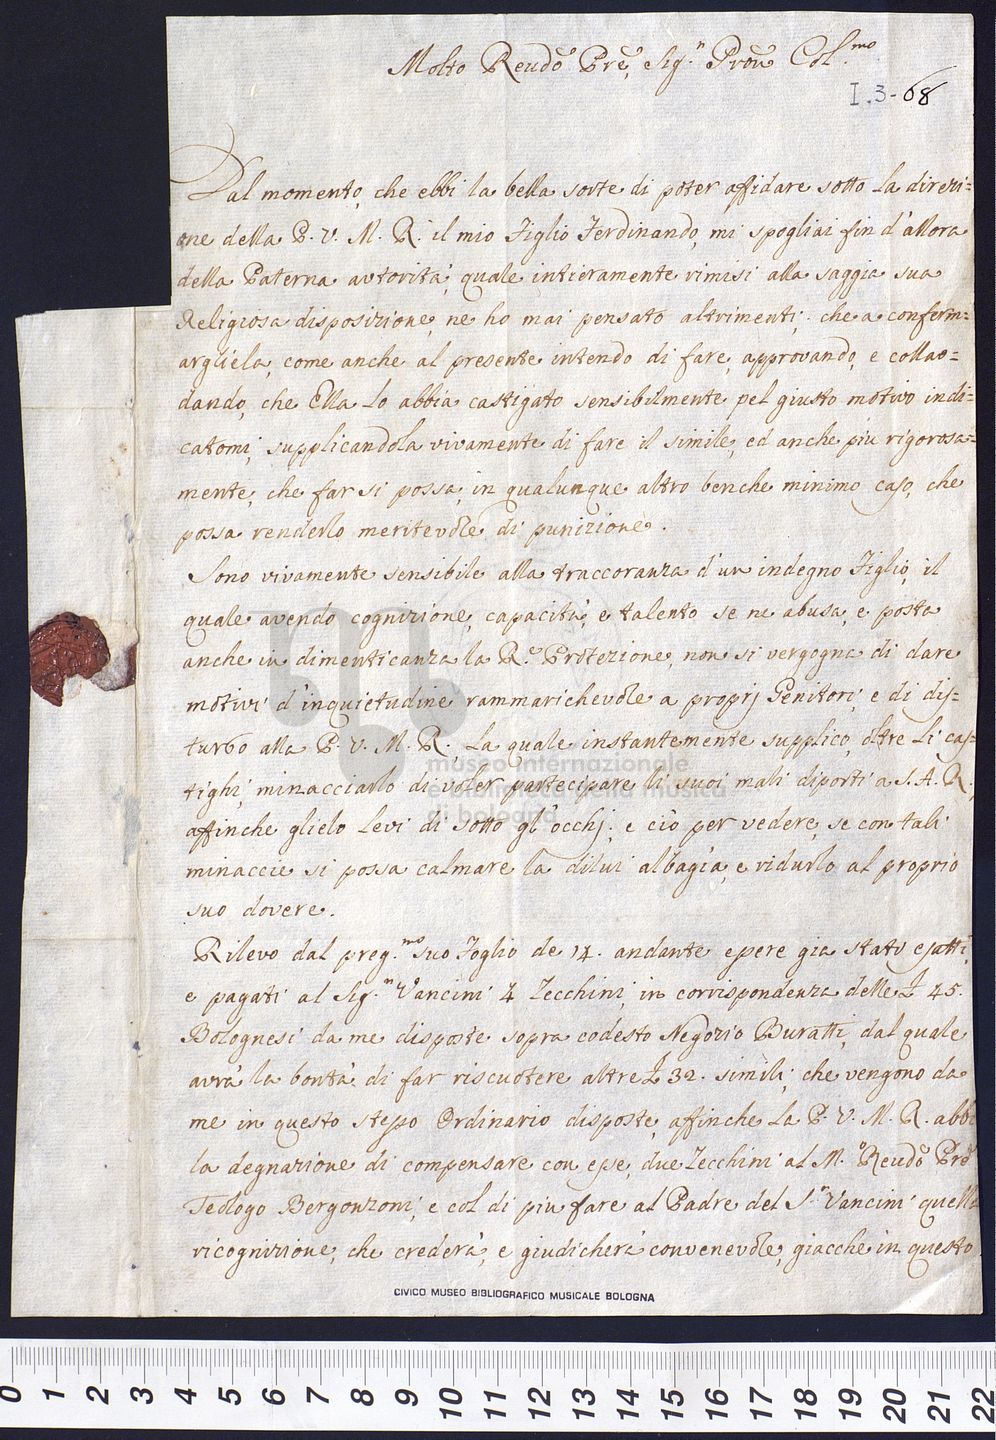 Molto Reudo Pre, Sig.n Prou Col.mo
I.3-68
Dal momento, che ebbi la bella sorte di poter affidare sotto la direzi=
one della P. V. M. R. il mio Figlio Ferdinando, mi spogliai fin d'allora
della Paterna autorità, quale intieramente rimisi alla saggia sua
Religiosa disposizione, ne ho mai pensato altrimenti, che a conferm=
argliela, come anche al presente intendo di fare, approvando, e collau=
dando, che Ella Lo abbia castigato sensibilmente pel giusto motivo indi=
catomi, supplicandola vivamente di fare il simile, ed anche più rigorosa=
mente, che far si possa, in qualunque altro benche minimo caso, che
possa renderlo meritevole di punizione.
Sono vivamente sensibile alla traccoranza d'un indegno Figlio, il
quale avendo cognizione, capacità, e talento se ne abusa, e posta
anche in dimenticanza la R.e Protezione, non si vergogna di dare
motivi d'inquietudine rammarichevole a proprj Genitori, e di dis=
turbo alla P. V. M. R. La quale instantemente supplico, oltre li cas=
tighi, minacciarlo di voler partecipare li suoi mali diporti a S. A. R.,
affinche glielo Levi di sotto gl'occhj; e ciò per vedere, se con tali
minaccie si possa calmare la dilui albagia, e ridurlo al proprio
suo dovere.
Rilevo dal preg.mo suo Foglio de 14. andante essere gia stati esatti,
e pagati al Sig.n Vancini 4 Zecchini, in corrispondenza delle £ 45.
Bolognesi da me disposte sopra codesto Negozio Buratti, dal quale
avrà la bontà di far riscuotere altre £ 32. simili, che vengono da
me in questo stesso Ordinario disposte, affinche La P. V. M. R. abbi
la degnazione di compensare con esse, due Zecchini al M.o Reudo Pre
Teologo Bergonzoni, e col di più fare al Padre del S.n Vancini quella
ricognizione, che crederà, e giudicherà convenevole, giacche in questo
museo internazionale
e biblioteca della musica
di bologna
CIVICO MUSEO BIBLIOGRAFICO MUSICALE BOLOGNA
0 1 2 3 4 5 6 7 8 9 10 11 12 13 14 15 16 17 18 19 20 21 22